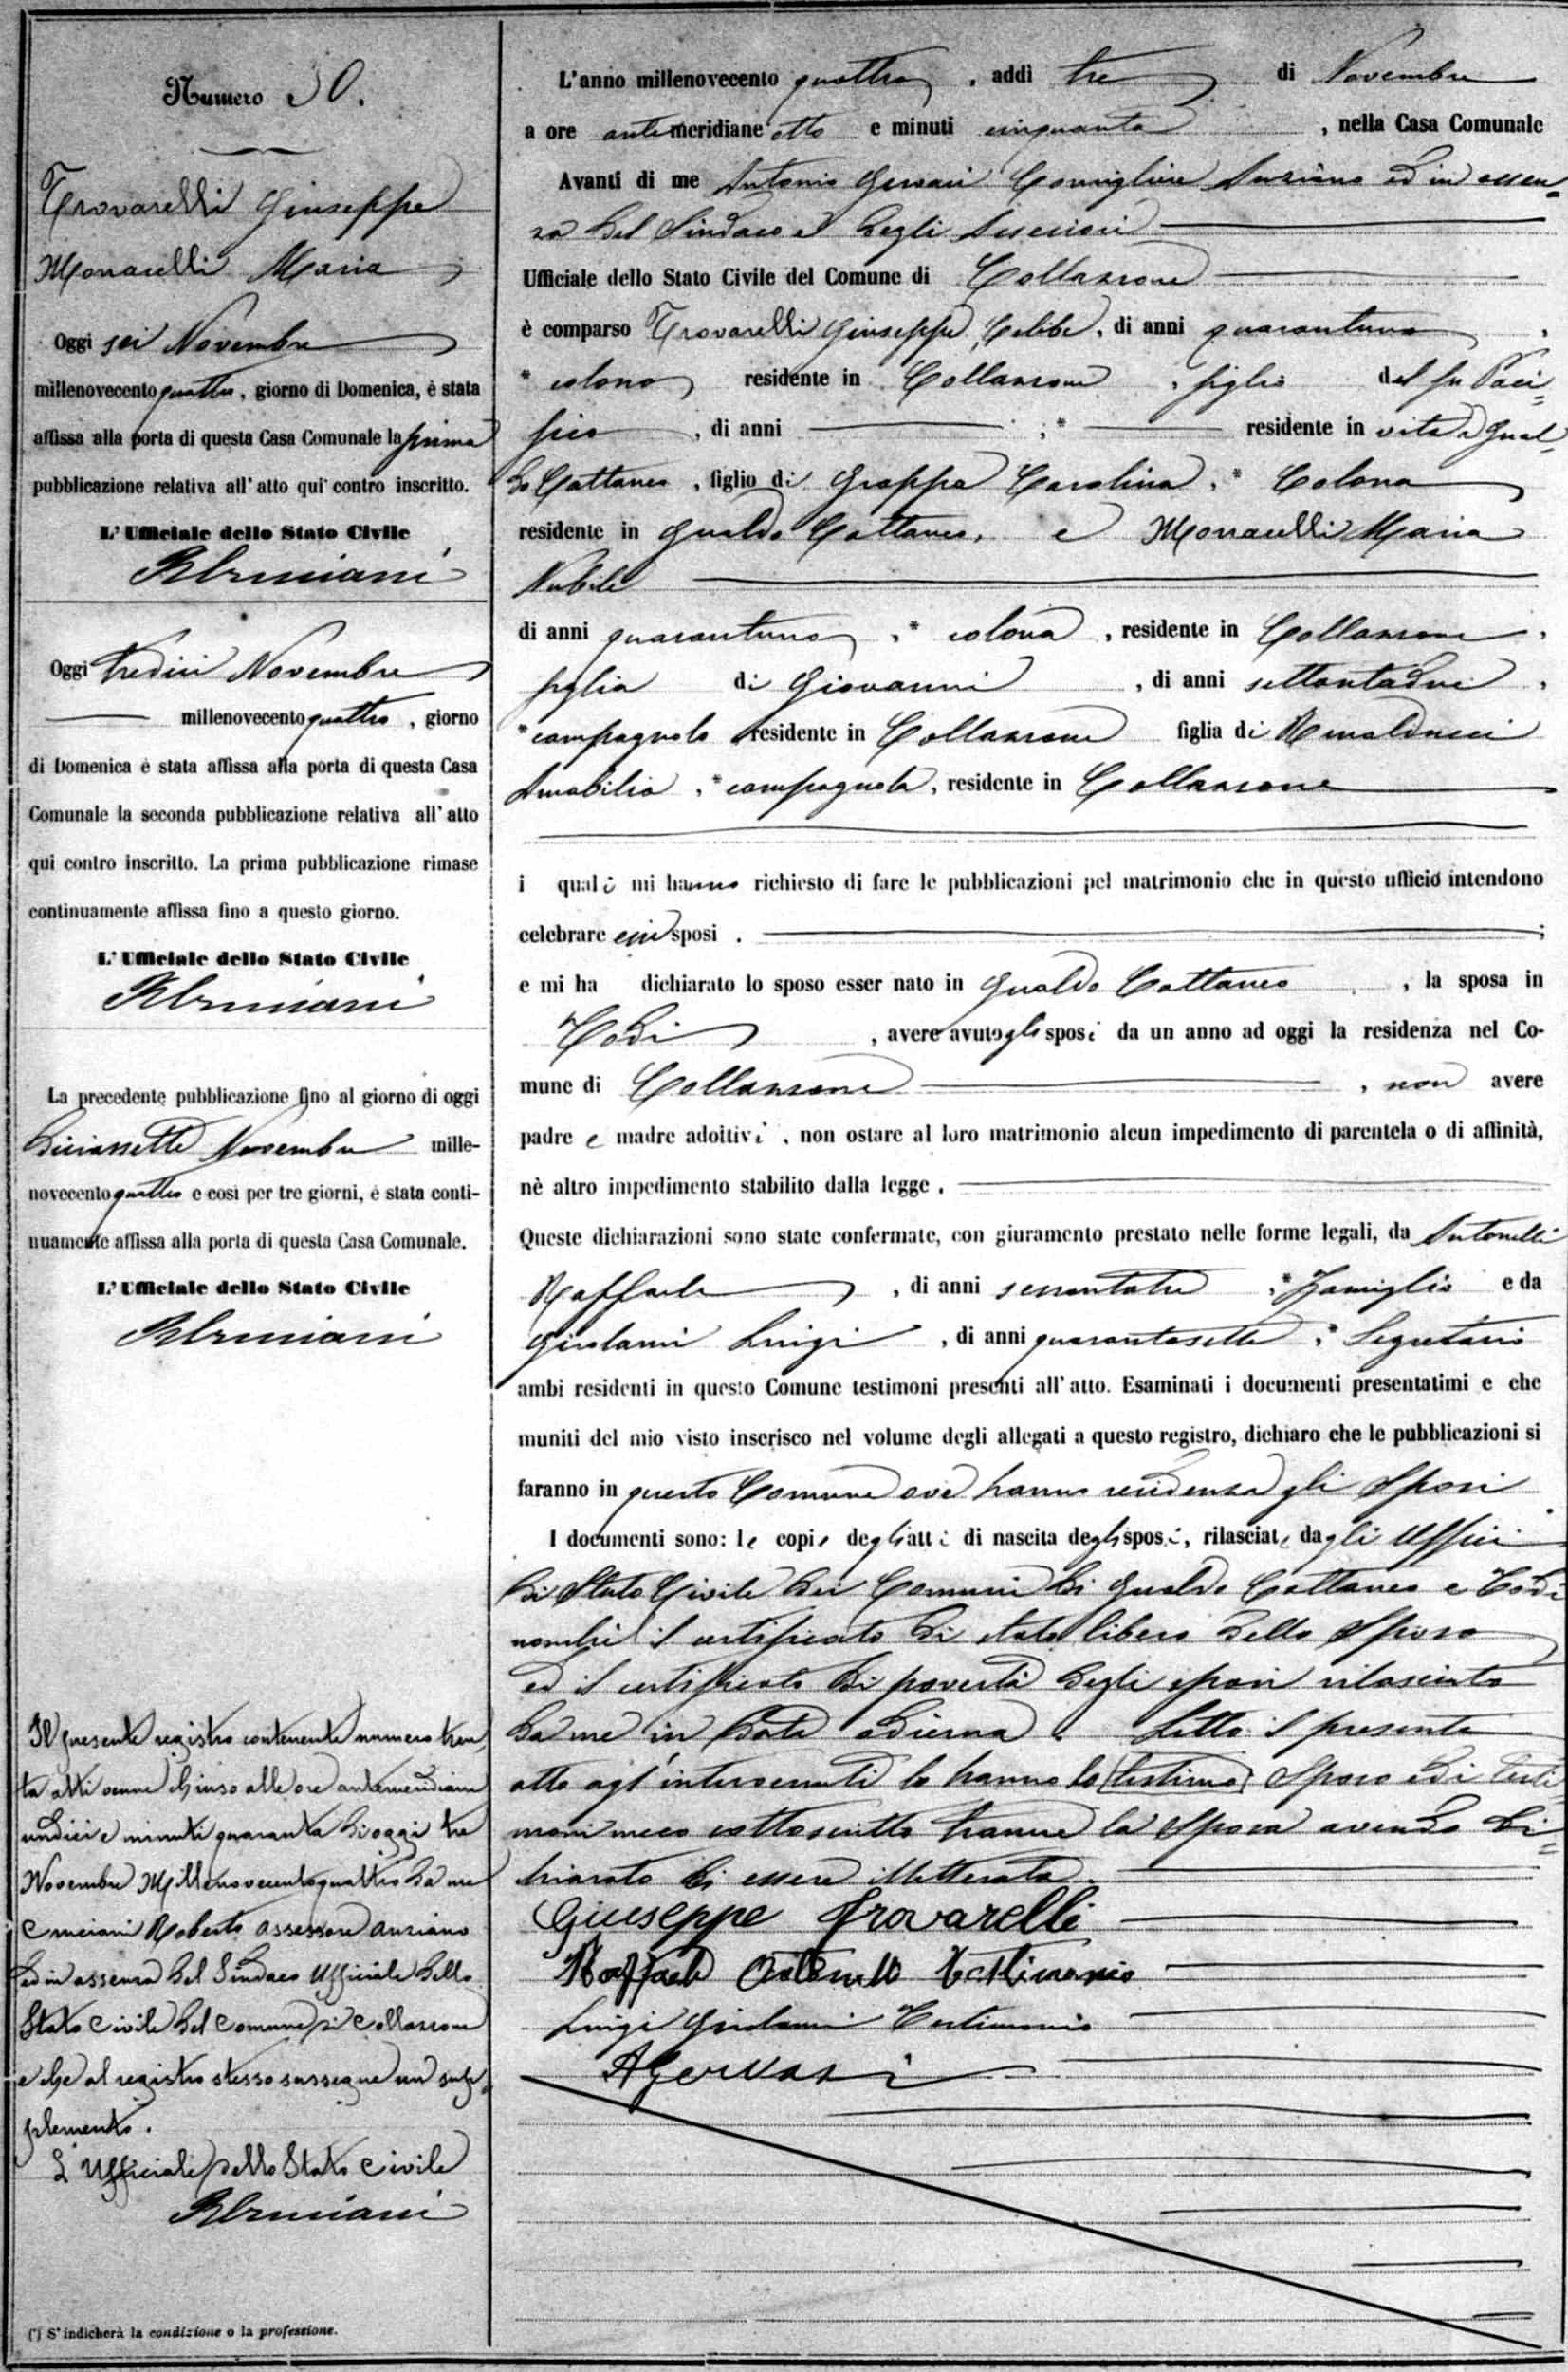 Numero 30.
Trovarelli Giuseppe
Monacelli Maria
Oggi sei Novembre
millenovecento quattro, giorno di Domenica, è stata
affissa alla porta di questa Casa Comunale la prima
pubblicazione relativa all'atto qui contro inscritto.
L'Ufficiale dello Stato Civile
RCruciani
Oggi tredici Novembre
millenovecento quattro, giorno
di Domenica è stata affissa alla porta di questa Casa
Comunale la seconda pubblicazione relativa all'atto
qui contro inscritto. La prima pubblicazione rimase
continuamente affissa fino a questo giorno.
L'Ufficiale dello Stato Civile
RCruciani
La precedente pubblicazione fino al giorno di oggi
diciassette Novembre mille-
novecento quattro e così per tre giorni, è stata conti-
nuamente affissa alla porta di questa Casa Comunale.
L'Ufficiale dello Stato Civile
RCruciani
Il presente registro contenente numero tren-
ta atti venne chiuso alle ore antemeridiane
undici e minuti quaranta di oggi tre
Novembre Millenovecentoquattro da me
Cruciani Roberto assessore anziano
ed in assenza del Sindaco Ufficiale dello
Stato Civile del Comune di Collazzone
e che al registro stesso sussegue un sup-
plemento.
L'Ufficiale dello Stato Civile
RCruciani
(*) S'indicherà la condizione o la professione.
L'anno millenovecento quattro, addì tre di Novembre
a ore antemeridiane otto e minuti cinquanta, nella Casa Comunale
Avanti di me Antonio Gervasi Consigliere Anziano ed in assen-
za del Sindaco e degli Assessori
Ufficiale dello Stato Civile del Comune di Collazzone
è comparso Trovarelli Giuseppe, Celibe, di anni quarantuno,
* colono residente in Collazzone, figlio del fu Paci-
fico, di anni ;* residente in vita a Gual-
do Cattaneo, figlio di Grappa Carolina, * Colona
residente in Gualdo Cattaneo, e Monacelli Maria
Nubile
di anni quarantuno, * colona, residente in Collazzone,
figlia di Giovanni, di anni settantadue,
* campagnolo residente in Collazzone figlia di Rinalducci
Amabilia, * campagnola, residente in Collazzone
i quali mi hanno richiesto di fare le pubblicazioni pel matrimonio che in questo ufficio intendono
celebrare essi sposi. ;
e mi ha dichiarato lo sposo esser nato in Gualdo Cattaneo, la sposa in
Todi, avere avuto gli sposi da un anno ad oggi la residenza nel Co-
mune di Collazzone, non avere
padre e madre adottivi, non ostare al loro matrimonio alcun impedimento di parentela o di affinità,
nè altro impedimento stabilito dalla legge.
Queste dichiarazioni sono state confermate, con giuramento prestato nelle forme legali, da Antonelli
Raffaele, di anni sessantatre, * Famiglio e da
Girolami Luigi, di anni quarantasette, * Segretario
ambi residenti in questo Comune testimoni presenti all'atto. Esaminati i documenti presentatimi e che
muniti del mio visto inserisco nel volume degli allegati a questo registro, dichiaro che le pubblicazioni si
faranno in questo Comune ove hanno residenza gli Sposi.
I documenti sono: le copie degli atti di nascita degli sposi, rilasciate dagli Uffici
di Stato Civile dei Comuni di Gualdo Cattaneo e Todi
nonchè il certificato di stato libero dello Sposo
ed il certificato di povertà degli sposi rilasciato
da me in data odierna. Letto il presente
atto agl'intervenuti lo hanno lo testimo Sposo ed i testi-
moni meco sottoscritto tranne la Sposa avendo di-
chiarato di essere illetterata.
Giuseppe Trovarelli
Raffaele Antonelli Testimonio
Luigi Girolami Testimonio
AGervasi